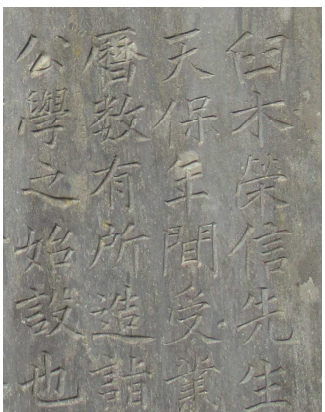 臼木榮信先生
天保年間受業
曆数有所造詣
公學之始設也